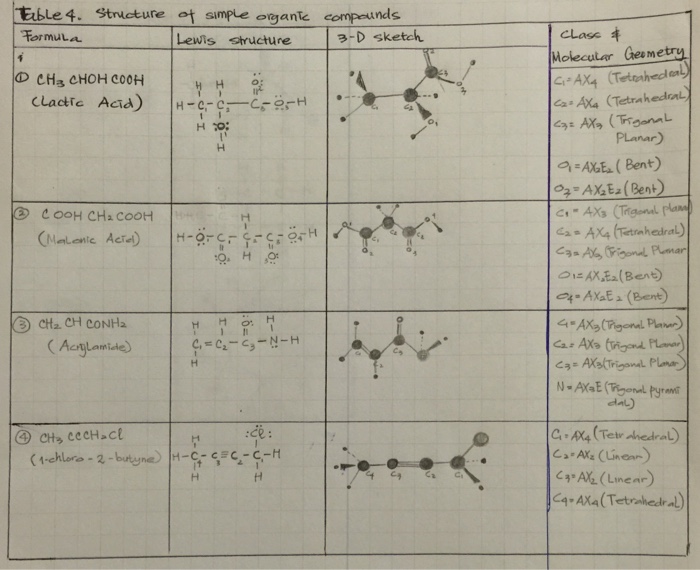 Table 4. Structure of simple organic compounds
Formula Lewis structure 3-D sketch Class & Molecular Geometry
① CH3 CHOH COOH
(Lactic Acid)
H H :O:
H-C1-C2-C3-Ö-H
H :O:
H
C1 C2 C3 O1 O2
C1= AX4 (Tetrahedral)
C2= AX4 (Tetrahedral)
C3= AX3 (Trigonal
Planar)
O1= AX2E2 (Bent)
O2= AX2E2 (Bent)
② COOH CH2 COOH
H
H-Ö-C1-C2-C3-Ö-H
:O: H :O:
C1= AX3 (Trigonal planar)
C2= AX4 (Tetrahedral)
C3= AX3 (Trigonal Planar
O1= AX2E2 (Bent)
O4= AX2E2 (Bent)
③ CH2 CH CONH2
(Acrylamide)
H H :O: H
C1=C2-C3-N-H
H
C1= AX3 (Trigonal Planar)
C2= AX3 (Trigonal Planar)
C3= AX3 (Trigonal Planar)
N= AX3E (Trigonal pyrami
dal)
④ CH3 CCCH2Cl
(1-chloro-2-butyne)
H :Cl:
H-C4-C3≡C2-C1-H
H H
C4 C3 C2 C1
C1= AX4 (Tetrahedral)
C2= AX2 (Linear)
C3= AX2 (Linear)
C4= AX4 (Tetrahedral)